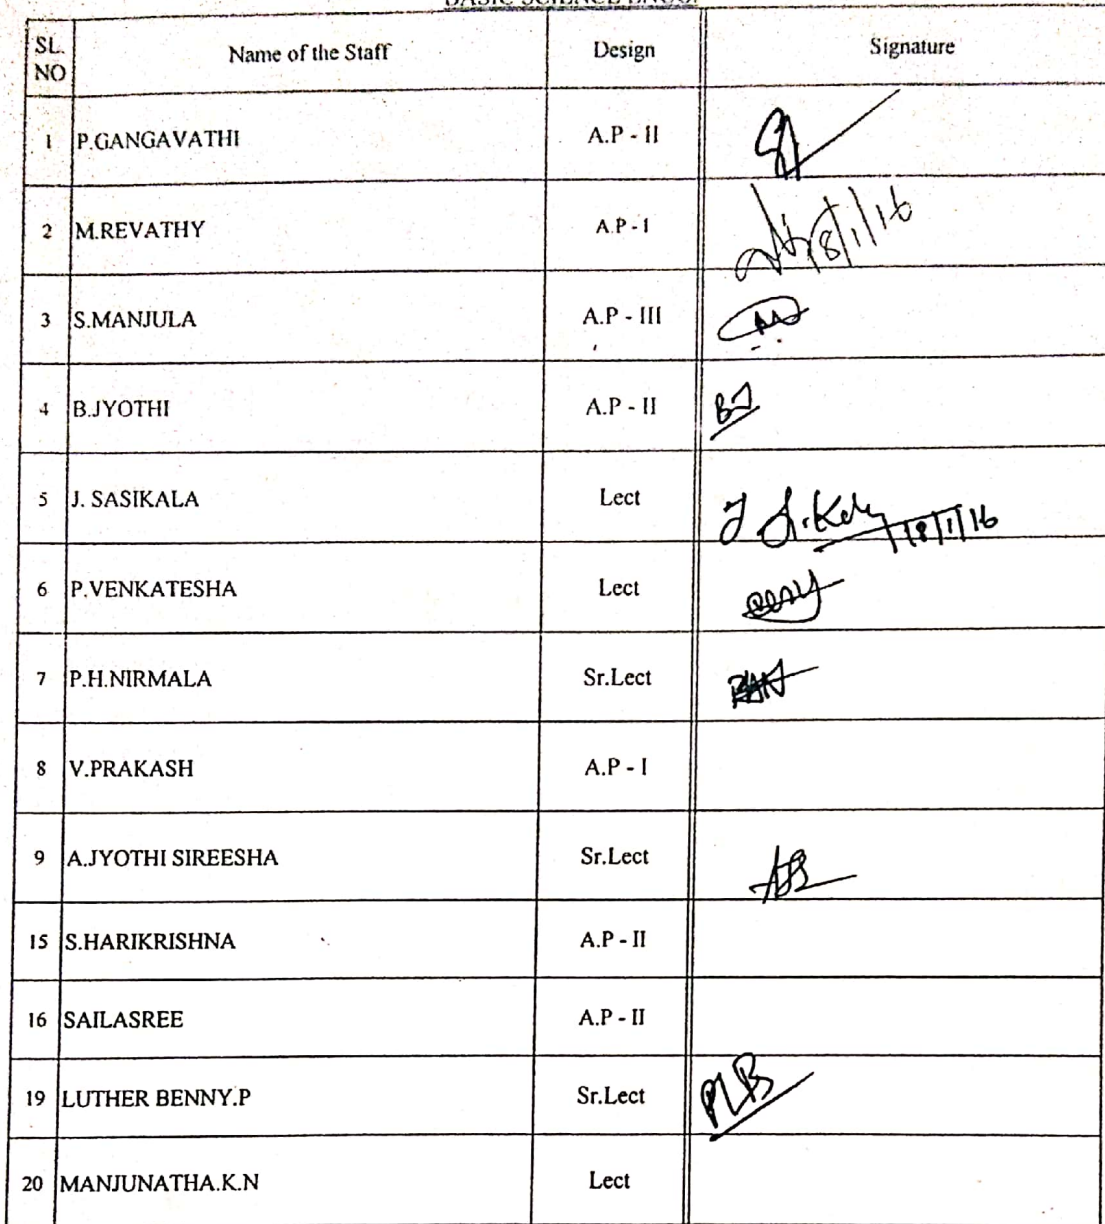 BASIC SCIENCE ENGG.
SL. NO Name of the Staff Design Signature
1 P.GANGAVATHI A.P - II
2 M.REVATHY A.P - I 18/1/16
3 S.MANJULA A.P - III
4 B.JYOTHI A.P - II BJ
5 J. SASIKALA Lect 18/1/16
6 P.VENKATESHA Lect
7 P.H.NIRMALA Sr.Lect
8 V.PRAKASH A.P - I
9 A.JYOTHI SIREESHA Sr.Lect
15 S.HARIKRISHNA A.P - II
16 SAILASREE A.P - II
19 LUTHER BENNY.P Sr.Lect PLB
20 MANJUNATHA.K.N Lect